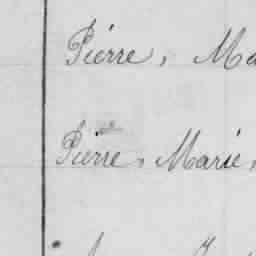 Pierre, Ma
Pierre, Marie,